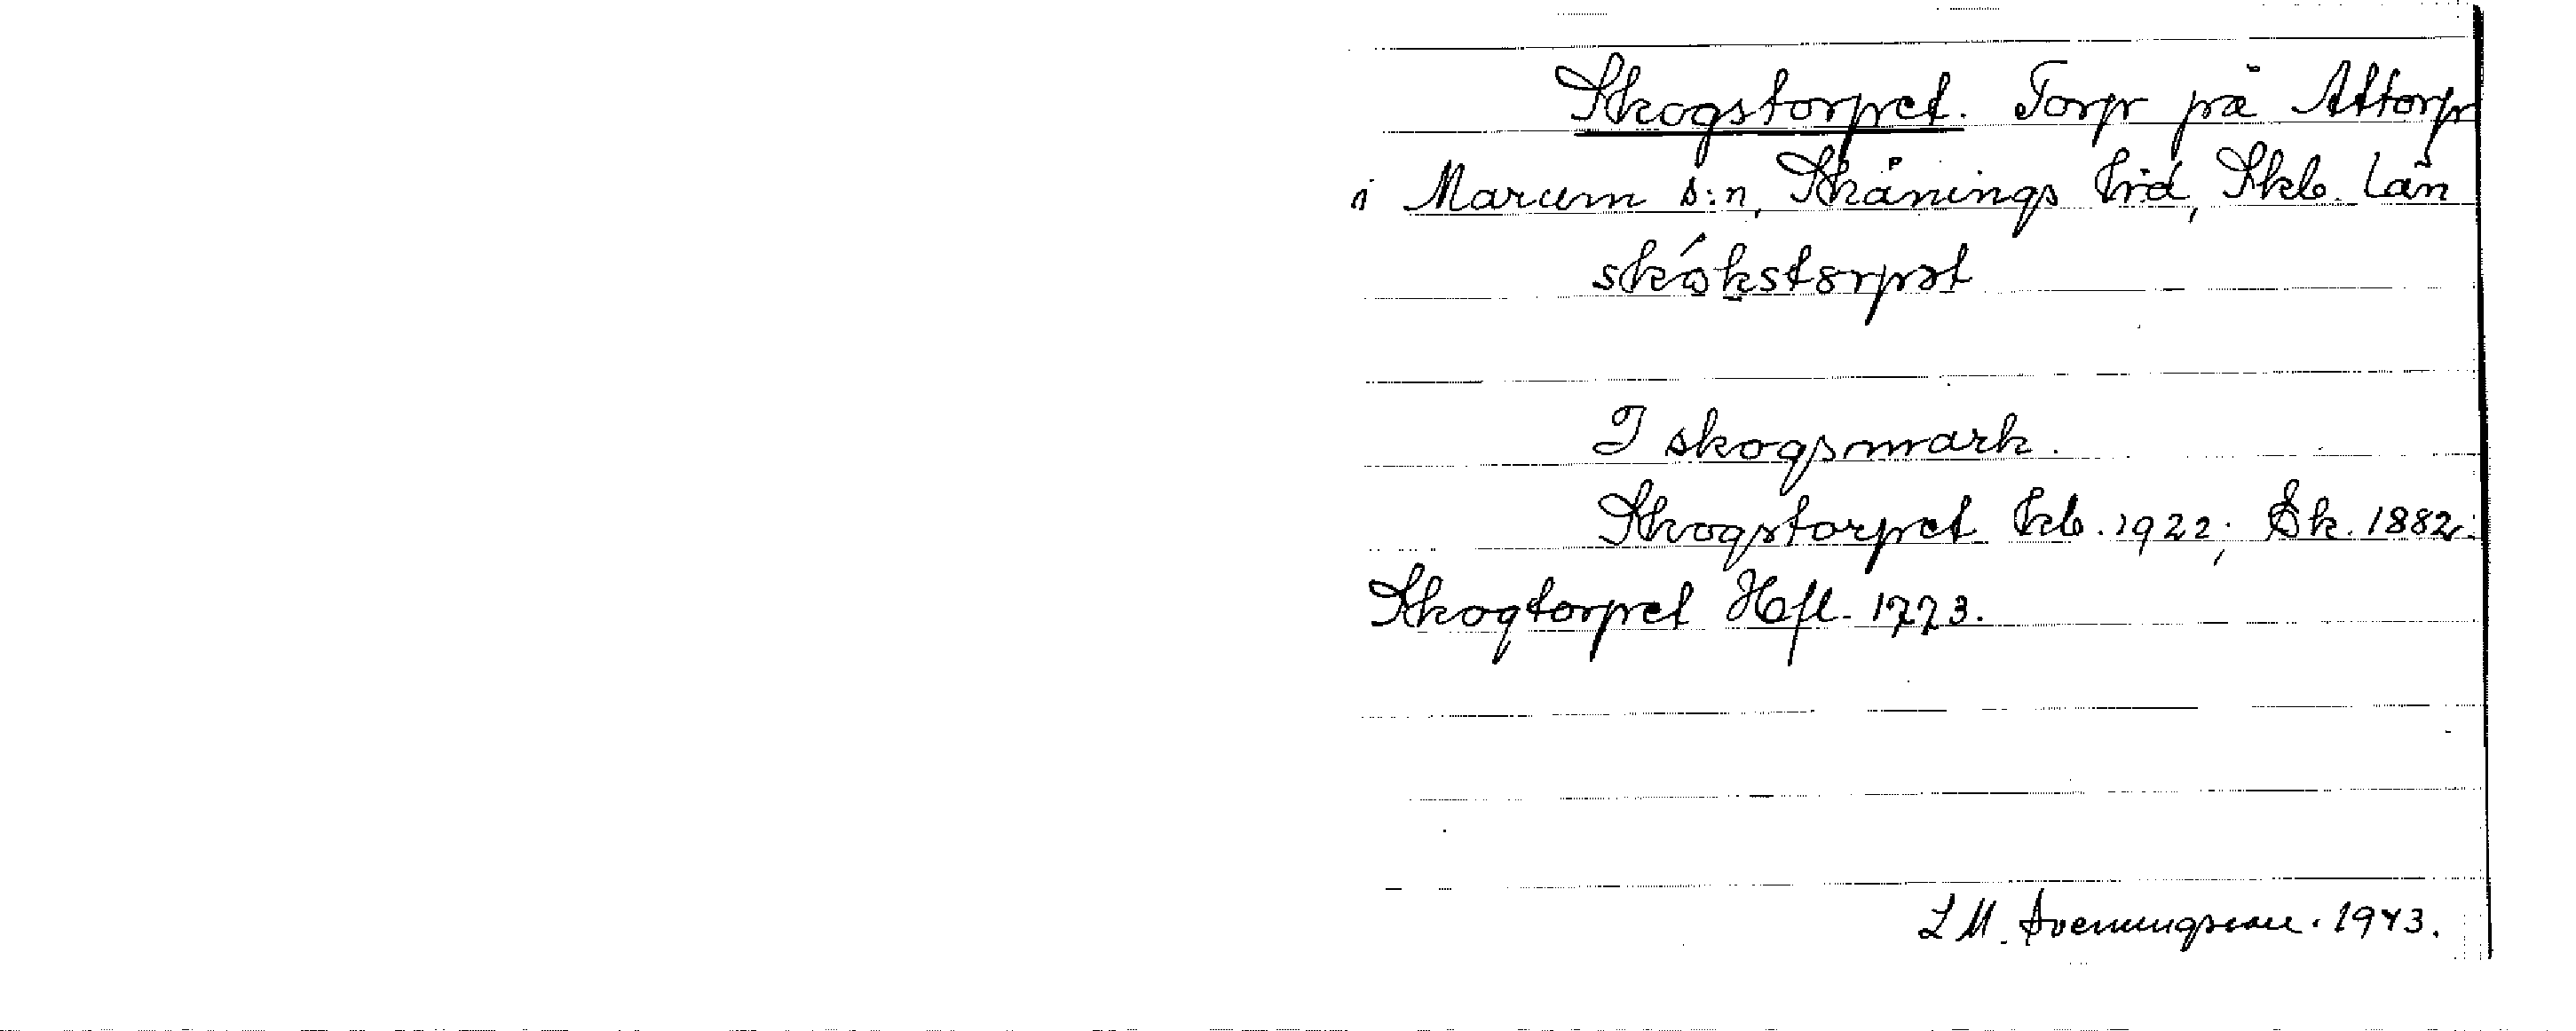 Skogstorpet. Torp på Attorp
i Marum s:n, Skånings hd, Skb. län
skókstorpət
I skogsmark.
Skogstorpet kb. 1922; Gk. 1882.
Skogtorpet Hfl. 1773.
L M. Svenungsson. 1943.